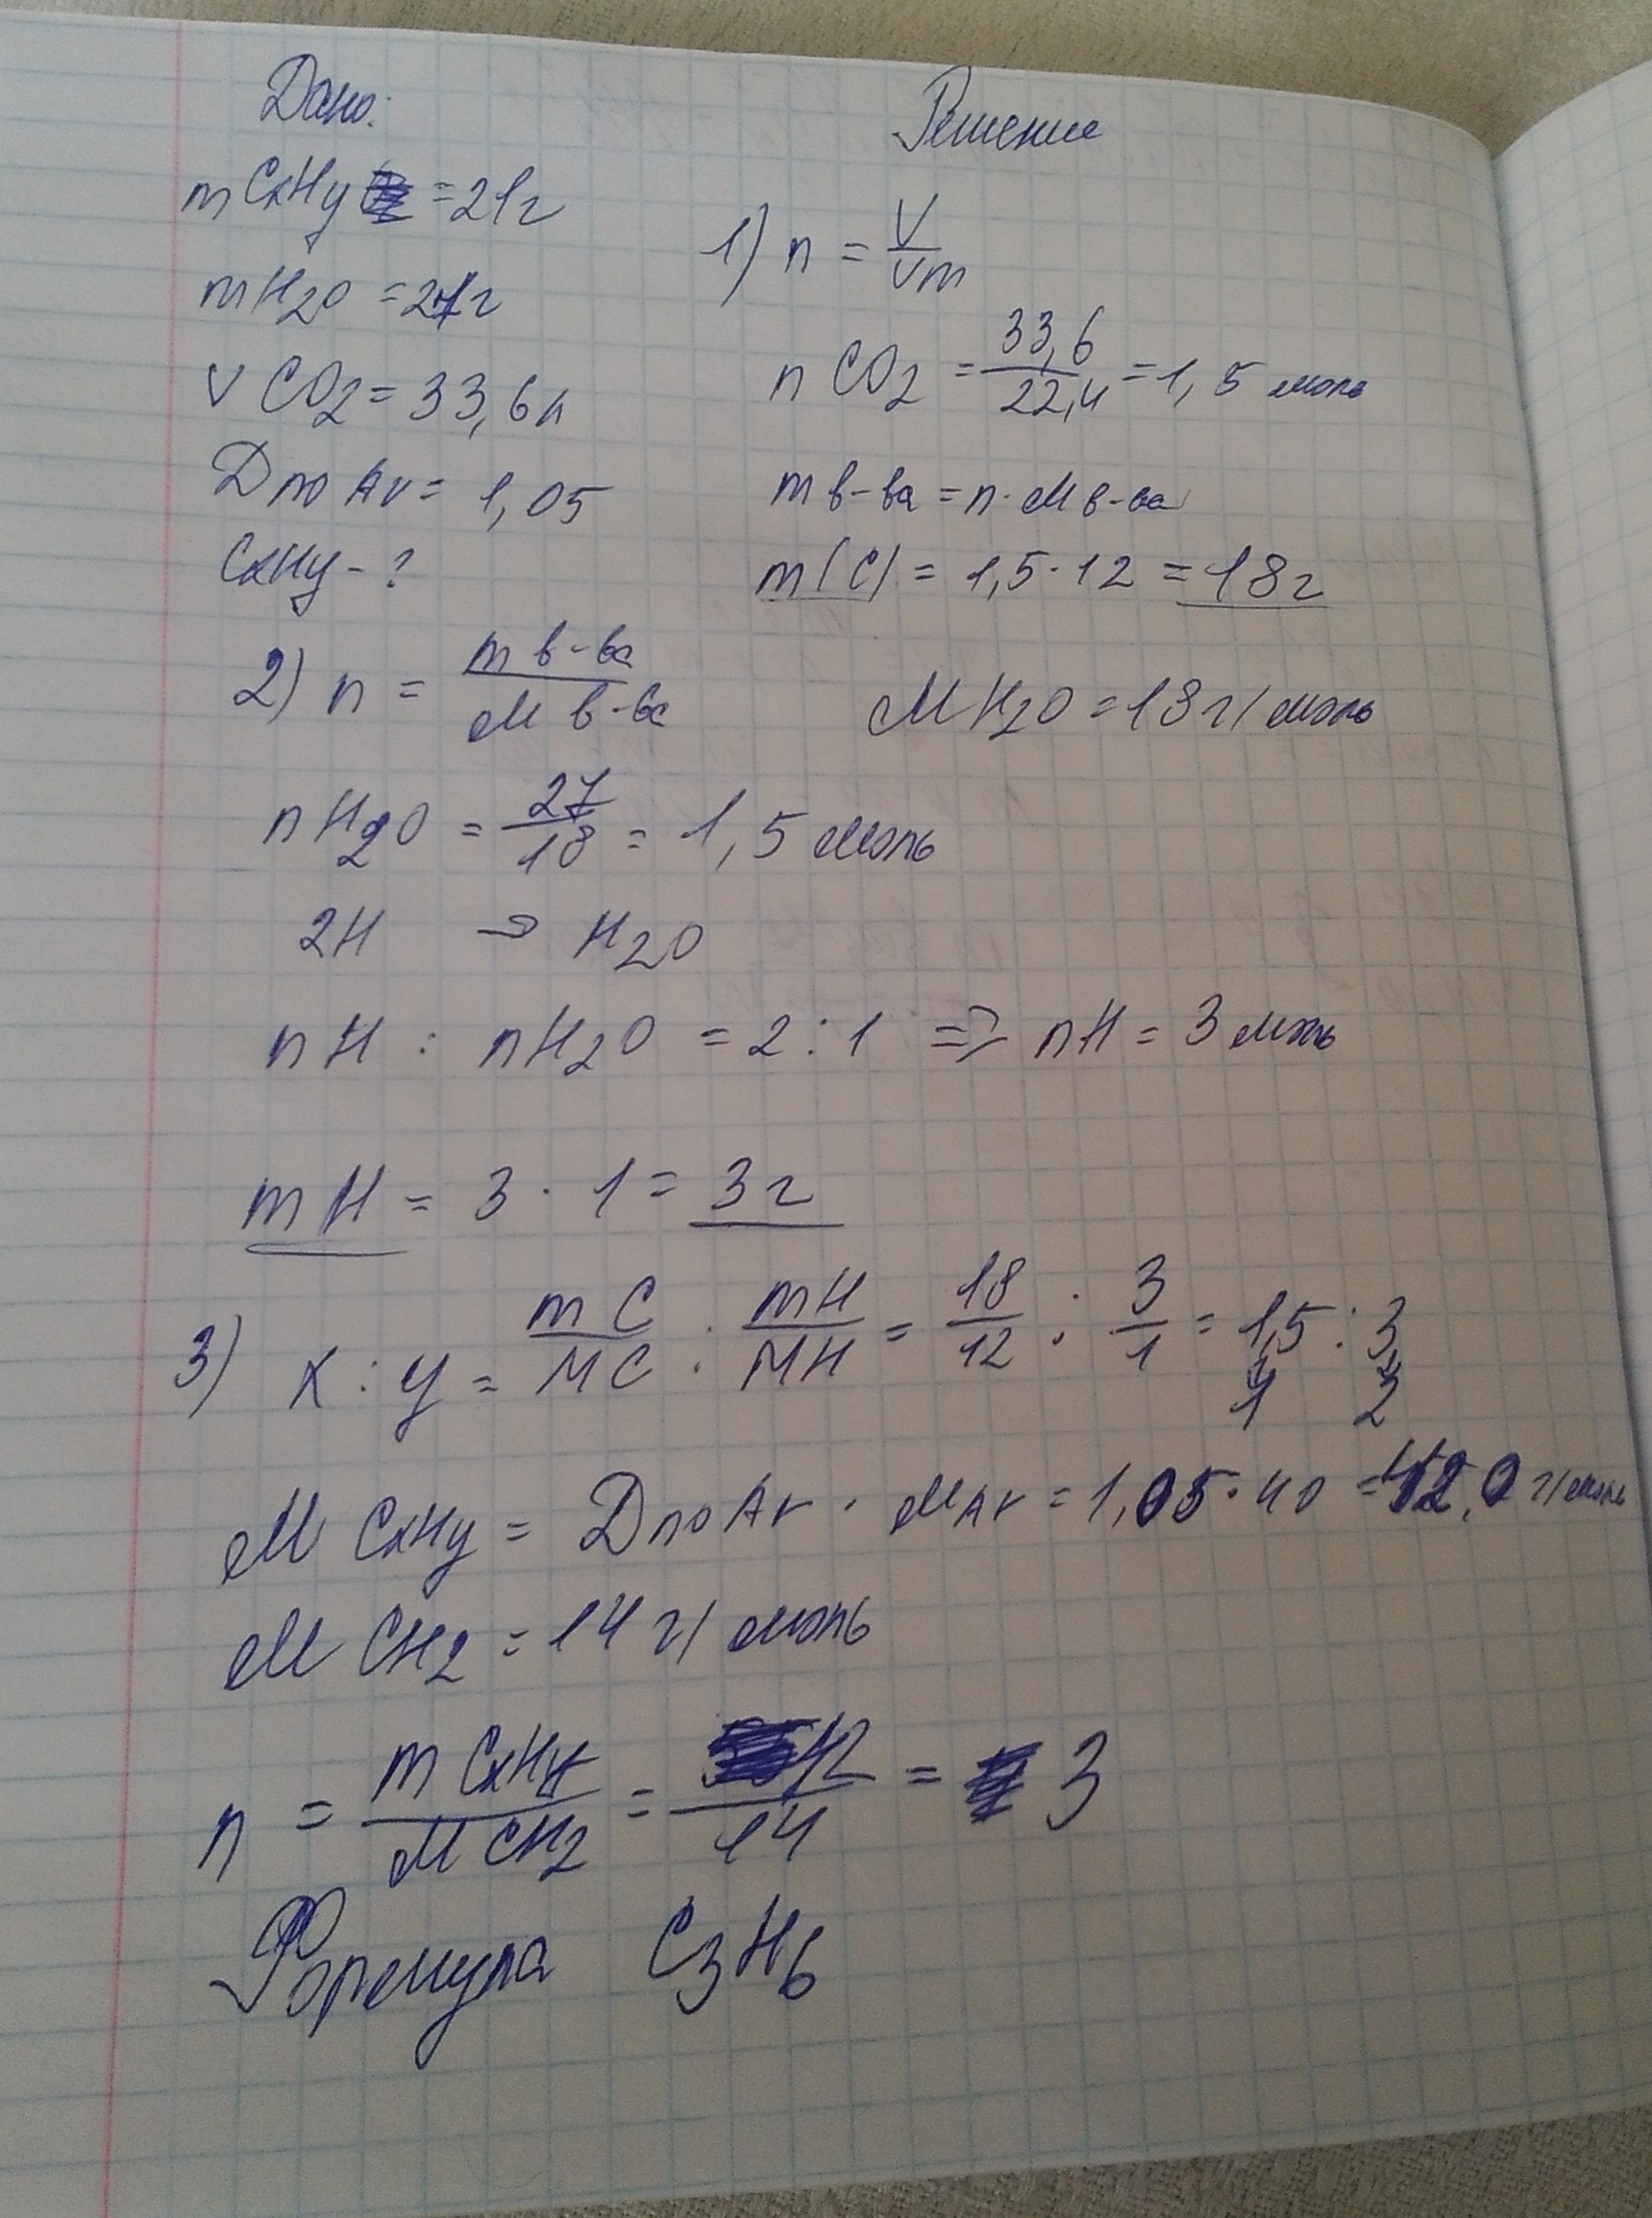 Дано:
Решение
mCxHy = 21г
mH2O = 27г
vCO2 = 33,6л
D по Ar = 1,05
CxHy - ?
1) n = V/Vm
nCO2 = 33,6/22,4 = 1,5 моль
m в-ва = n · M в-ва
m(C) = 1,5 · 12 = 18г
2) n = m в-ва/M в-ва
MH2O = 18г/моль
nH2O = 27/18 = 1,5 моль
2H → H2O
nH : nH2O = 2 : 1 => nH = 3 моль
mH = 3 · 1 = 3г
3) x : y = mC/MC : mH/MH = 18/12 : 3/1 = 1,5 : 3
1 2
M CxHy = D по Ar · MAr = 1,05 · 40 = 42,0 г/моль
M CH2 = 14 г/моль
n = m CxHy/M CH2 = 42/14 = 3
Формула C3H6